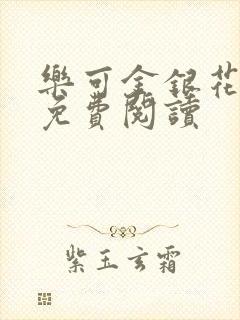 樂可金銀花
免費閱讀
紫玉玄霜